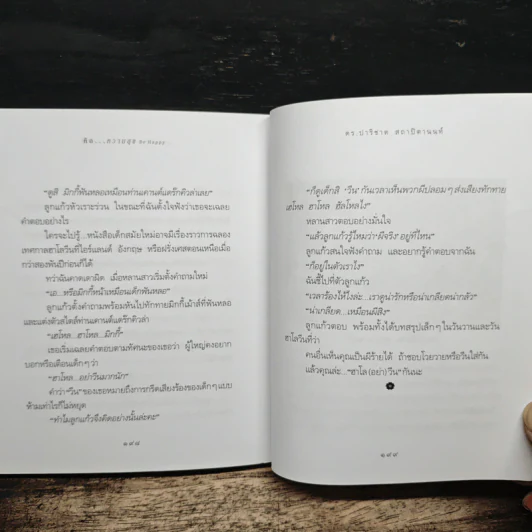 คือ...ความสุข Be Happy
“ดูสิ มิกกี้ฟันหลอเหมือนท่านเคานต์แดร๊กคิวล่าเลย”
ลูกแก้วหัวเราะร่วน ในขณะที่ฉันตั้งใจฟังว่าเธอจะเฉลย
คำตอบอย่างไร
ใครจะไปรู้...หนังสือเด็กสมัยใหม่อาจมีเรื่องราวการฉลอง
เทศกาลฮาโลวีนที่ไอร์แลนด์ อังกฤษ หรือฝรั่งเศสตอนเหนือเมื่อ
กว่าสองพันปีก่อนก็ได้
ทว่าฉันคาดเดาผิด เมื่อหลานสาวเริ่มตั้งคำถามใหม่
“เอ...หรือมิกกี้หน้าเหมือนเด็กฟันหลอ”
ลูกแก้วตั้งคำถามพร้อมหันไปทักทายมิกกี้เม้าส์ที่ฟันหลอ
และแต่งตัวสไตล์ท่านเคานต์แดร๊กคิวล่า
“เฮโหล...ฮาโหล...มิกกี้”
เธอเริ่มเฉลยคำตอบตามทัศนะของเธอว่า ผู้ใหญ่คงอยาก
บอกหรือเตือนเด็กๆ ว่า
“ฮาโหล...อย่าวีนมากนัก”
คำว่า “วีน” ของเธอหมายถึงการกรีดเสียงร้องของเด็กๆ แบบ
ห้ามเท่าไรก็ไม่หยุด
“ทำไมลูกแก้วจึงคิดอย่างนั้นล่ะคะ”
๑๙๘
ดร.ปาริชาต สถาปิตานนท์
“ก็ดูเด็กสิ ‘วีน’ กันเวลาเห็นพวกผีปลอมๆ ส่งเสียงทักทาย
เฮโหล ฮาโหล ฮัลโหลไง”
หลานสาวตอบอย่างมั่นใจ
“แล้วลูกแก้วรู้ไหมว่า ‘ผีจริง’ อยู่ที่ไหน”
ลูกแก้วสนใจฟังคำถาม และอยากรู้คำตอบจากฉัน
“ก็อยู่ในตัวเราไง”
ฉันชี้ไปที่ตัวลูกแก้ว
“เวลาร้องไห้ไงล่ะ...เราดูน่ารักหรือน่าเกลียดน่ากลัว”
“น่าเกลียด...เหมือนผีสิง”
ลูกแก้วตอบ พร้อมทั้งได้บทสรุปเล็กๆ ในวันวานและวัน
ฮาโลวีนที่ว่า
คนอื่นเห็นคุณเป็นผีร้ายได้ ถ้าชอบโวยวายหรือวีนใส่กัน
แล้วคุณล่ะ...“ฮาโล (อย่า) วีน” กันนะ
๑๙๙